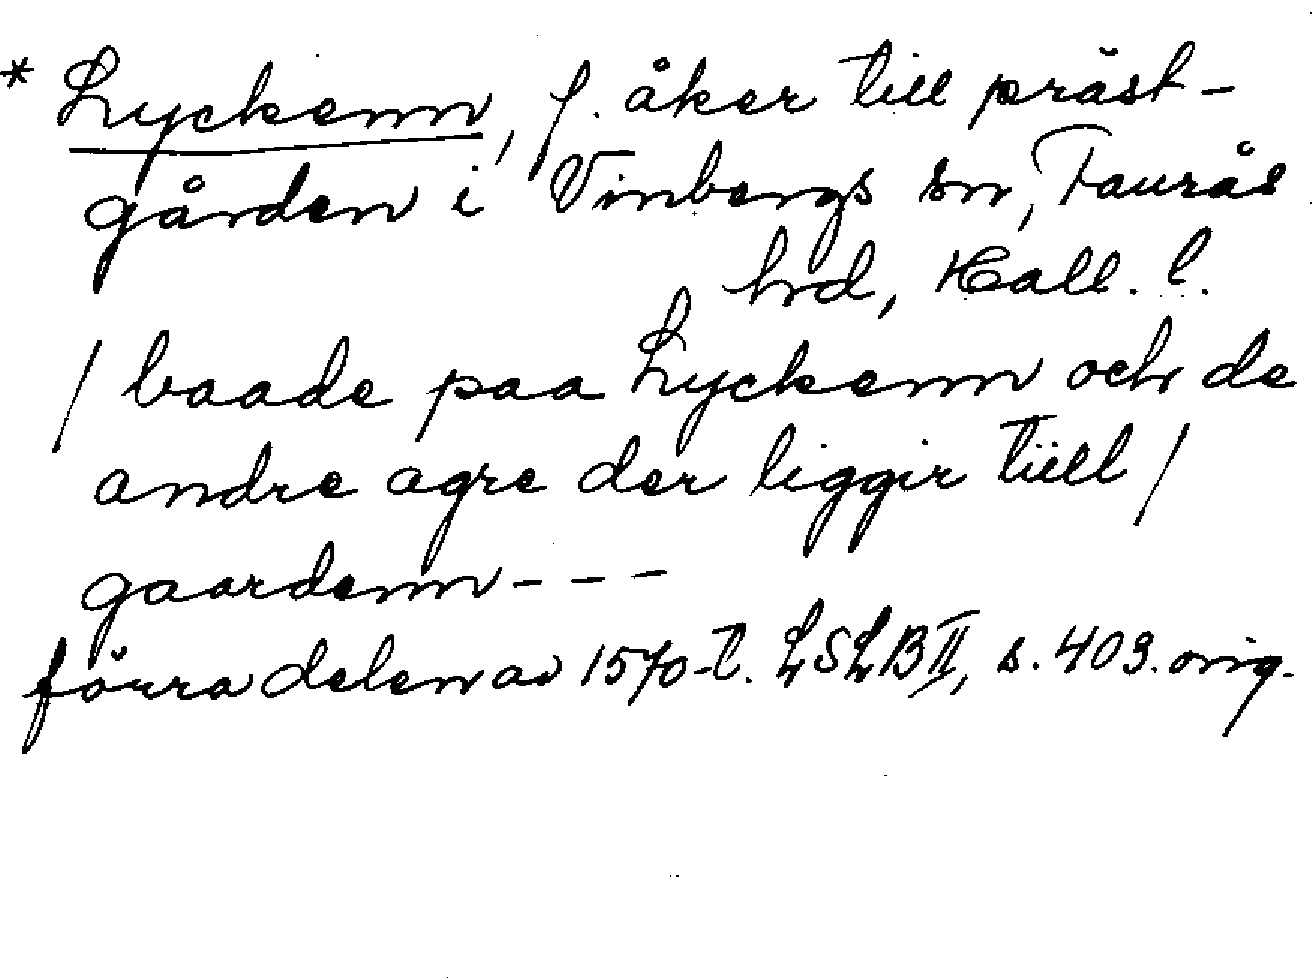 * Lyckenn, f. åker till präst-
gården i Vinbergs sn, Faurås
hrd, Hall. l.
/ baade paa Lyckenn och de
andre agre der liggir tiill /
gaardenn - - -
förra delen av 1570-t. LSLB II, s. 403. orig.